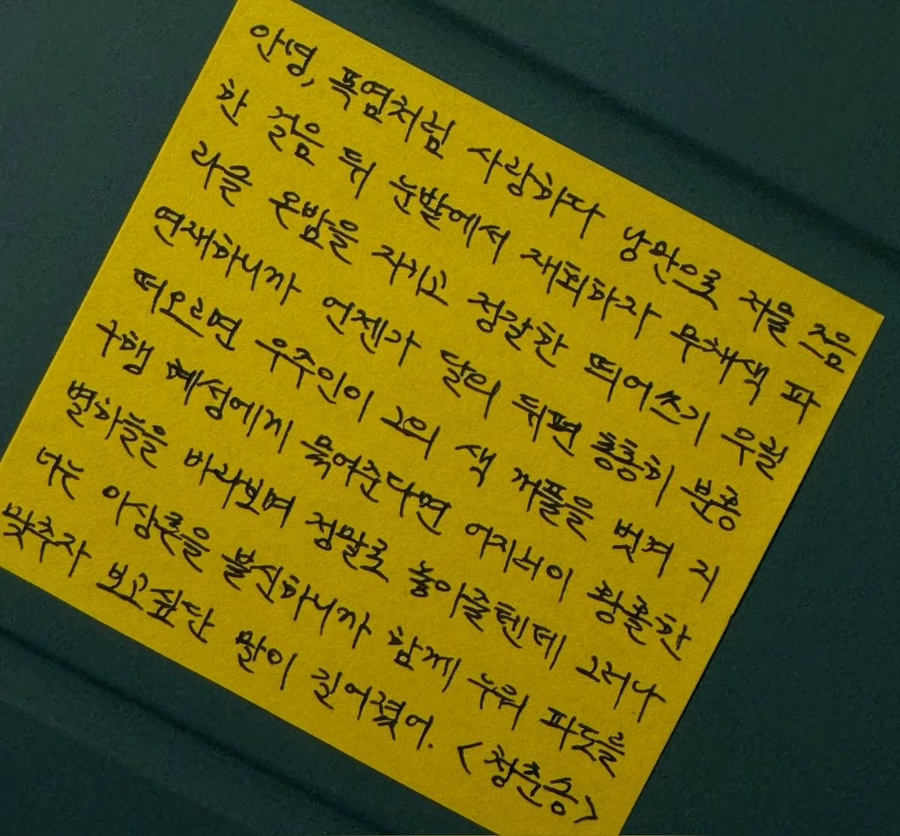 안녕, 폭염처럼 사랑하다 낭만으로 저물 즈음
한 걸음 뒤 눈발에서 재회하자 무채색 파
라을 온밤을 지키고 정갈한 띄어쓰기 우릴
연재하니까 언젠가 달의 뒤편 총총히 분홍
떠오르면 우주인이 그의 색 꺼풀을 벗겨 지
구행 혜성에게 묶어준다면 어지러이 황홀한
별하늘을 바라보며 정말로 놓아줄텐데 그러나
너는 이상론을 불신하니까 함께 누워 파도를
맞추자 보고싶단 말이 길어졌어. <청춘송>